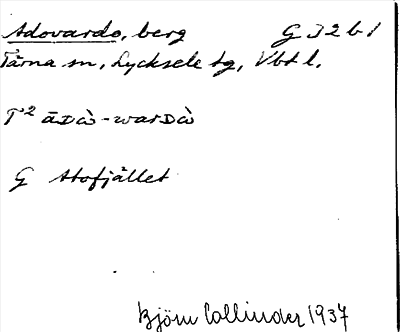 Adovardo, berg G 32 b 1
Tärna sn, Lycksele lg, Vbtl.
T² āDὼ-warDὼ
G Atofjället
Björn Collinder 1937